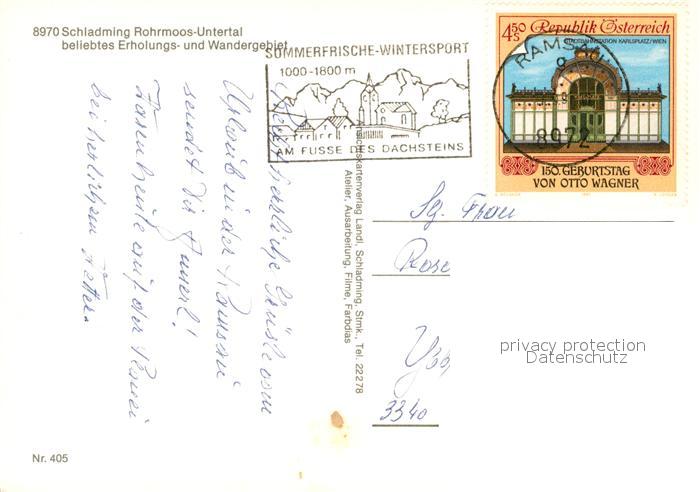 8970 Schladming Rohrmoos-Untertal
beliebtes Erholungs- und Wandergebiet
SOMMERFRISCHE-WINTERSPORT
1000-1800 m
AM FUSSE DES DACHSTEINS
4.50 S Republik Österreich
STADTBAHNSTATION KARLSPLATZ/WIEN
150. GEBURTSTAG
VON OTTO WAGNER
RAMSAU
8972
Recht herzliche Grüsse vom
Urlaub in der Ramsau
sendet Dir
auf der
bei herrlichem Wetter.
Ansichtskartenverlag Landl, Schladming, Stmk., Tel. 22278
Atelier, Ausarbeitung, Filme, Farbdias
Sg. Frau
Rose
Ybb,
3340
privacy protection
Datenschutz
Nr. 405